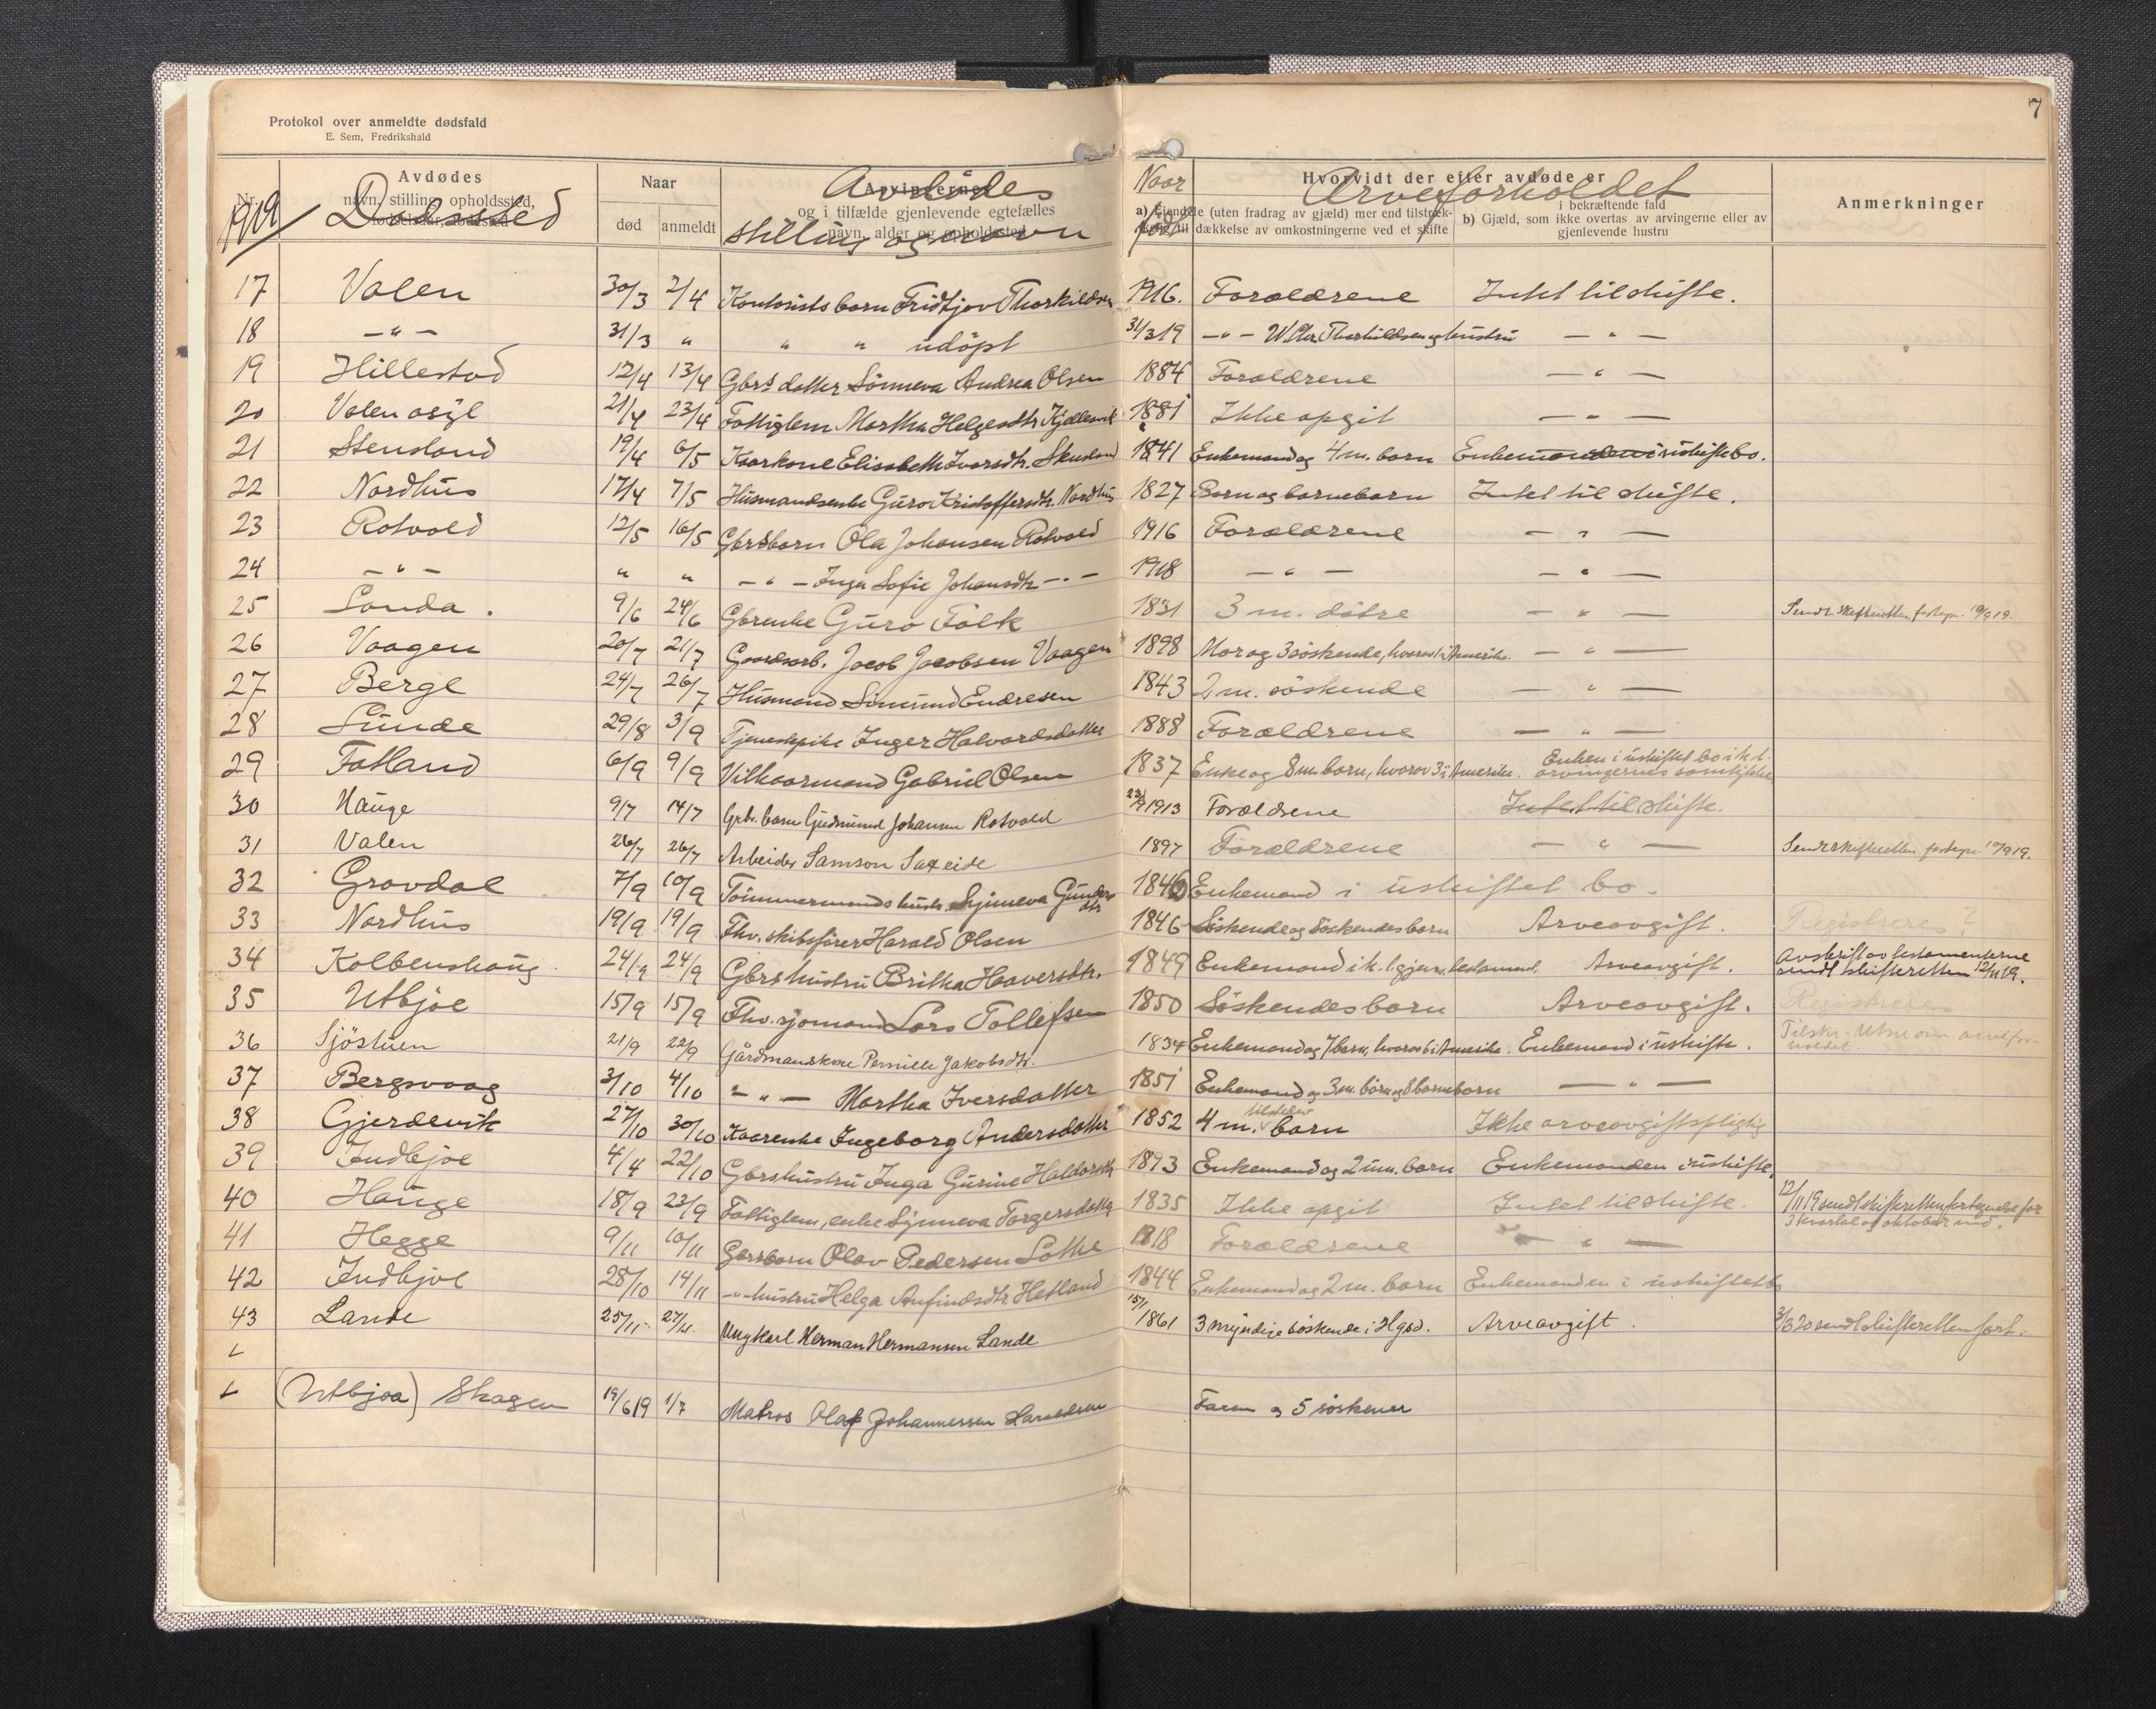 7
Protokol over anmeldte dødsfald
E. Sem, Fredrikshald
Nr. Avdødes Naar Arvingernes Naar Hvorvidt der efter avdøde er Anmerkninger
1919 Dødssted Avdødes Arveforholdet
navn, stilling, opholdssted, død anmeldt og i tilfælde gjenlevende egtefælles født a) Eiendele (uten fradrag av gjæld) mer end tilstræk- i bekræftende fald
navn, alder og opholdssted til dækkelse av omkostningerne ved et skifte b) Gjæld, som ikke overtas av arvingerne eller av
stilling og navn gjenlevende hustru
17 Valen 30/3 2/4 Kontorists barn Fridtjov Thorkildsen 1916. Forældrene Intet til skifte.
18 -"- 31/3 " " " udöpt 31/3 19 -"- Thorkildsen og hustru - " -
19 Hillestad 12/4 13/4 Gbrs datter Sönneva Andrea Olsen 1884 Forældrene - " -
20 Valen asyl 21/4 23/4 Fattiglem Martha Helgesdtr. 1881 Ikke opgit - " -
21 Stensland 19/4 6/5 Kaarkone Elisabeth Ivarsdtr. 1841 Enkemand og 4 m. barn Enkemanden i uskifte bo.
22 Nordhus 17/4 7/5 Husmandsenke Guro Kristoffersdtr. Nordhus 1827 Barn og barnebarn Intet til skifte.
23 Rotvold 12/5 16/5 Gbrsbarn Ola Johansen Rotvold 1916 Forældrene - " -
24 -"- " " -"- Inga Sofie Johansdtr -"- 1918 - " - - " -
25 Landa. 9/6 24/6 Gbrenke Guro Fölk 1831 3 m. dötre - " - Sendt skifteretten 10/9 19.
26 Vaagen 20/7 21/7 Gaardsarb. Jacob Jacobsen Vaagen 1898 Mor og 3 söskende, hvorav 1 i Amerika. - " -
27 Berge 24/7 26/7 Husmand Simund Endresen 1843 2 m. söskende - " -
28 Sunde 29/8 3/9 Tjenestepike Inger Halvardsdatter 1888 Forældrene - " -
29 Fatland 6/9 9/9 Vilkaarmand Gabriel Olsen 1837 Enke og 8 m. barn, hvorav 3 i Amerika. Enken i uskiftet bo i h.t.
arvingernes samtykke
30 Hauge 9/7 14/7 Gbr. barn Gudmund Johansen Rotvold 1913 Forældrene Intet til skifte.
31 Valen 26/7 26/7 Arbeider Samson Saxeide 1897 Forældrene - " - Sendt skifteretten 10/9 19.
32 Gravdal 7/9 10/9 Tömmermands hustr. Synneva Gunders dtr 1846 Enkemand i uskiftet bo.
33 Nordhus 19/9 19/9 Fhv. skibsförer Harald Olsen 1846 Söskende og Söskendesbarn Arveavgift. Registreres?
34 Kolbenshaug 24/9 24/9 Gbrs hustru Britha Haaversdtr. 1849 Enkemand i h.t. gjens. testament. Arveavgift. Avskrift av testamenterne
sendt skifteretten 12/11 19.
35 Utbjoe 15/9 15/9 Fhv. sjömand Lars Tollefsen 1850 Söskendesbarn Arveavgift. Registreres
36 Sjöstuen 21/9 22/9 Gårdmanskone Pernille Jakobsdtr. 1834 Enkemand og 7 barn, hvorav 6 i Amerika. Enkemand i uskifte.
37 Bergsvaag 3/10 4/10 - " - Martha Iversdatter 1851 Enkemand og 3 m. börn og 8 barnebarn - " -
38 Gjerdevik 27/10 30/10 Kaarenke Ingeborg Andersdatter 1852 4 m. barn Ikke arveavgiftspligtig
39 Indbjoe 4/4 22/10 Gbrshustru Inga Gurine Haldorsdtr 1893 Enkemand og 2 um. barn Enkemanden i uskifte.
40 Hauge 18/9 23/9 Fattiglem, enke Synneva Torgersdatter 1835 Ikke opgit Intet til skifte. 12/11 19 sendt skifteretten fortegnelse for
3 kvartal og oktober md.
41 Hegge 9/11 10/11 Gbrsbarn Olav Pedersen Lothe 1918 Forældrene - " -
42 Indbjoe 28/10 14/11 -"- hustru Helga Anfindsdtr Hetland 1844 Enkemand og 2 m. barn Enkemanden i uskiftet bo
43 Lande 25/11 27/11 Ungkarl Herman Hermansen Lande 15/1 1861 3 myndige söskende i Hgsd. Arveavgift. 3/3 20 sendt skifteretten fort.
(Utbjoa) Skagen 19/6 19 1/7 Matros Olaf Johannessen Faren og 5 söskener